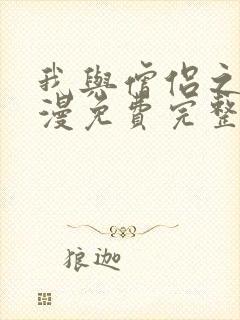 我與僧侶之
漫免費完整
狼迦